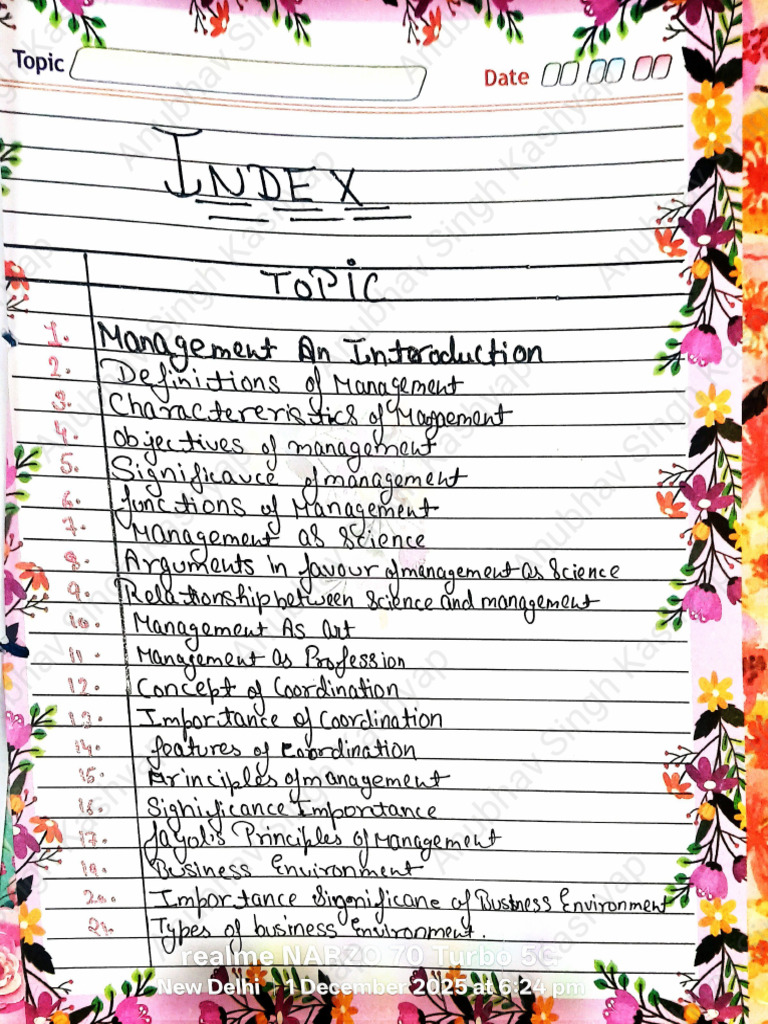 Topic
Date
INDEX
TOPIC
1. Management An Interoduction
2. Definitions of Management
3. Charactereristics of Magnement
4. objectives of management
5. Significavce of management
6. functions of Management
7. Management as Science
8. Arguments in favour of management as Science
9. Relationship between Science and management
10. Management As Art
11. Management as Profession
12. Concept of Coordination
13. Importance of Coordination
14. features of Coordination
15. Principles of management
16. Significance Importance
17. fayol's Principles of Management
19. Business Environment
20. Importance Singnificane of Business Environment
21. Types of business Environment.
realme NARZO 70 Turbo 5G
New Delhi 1 December 2025 at 6:24 pm
Anubhav Singh Kashyap